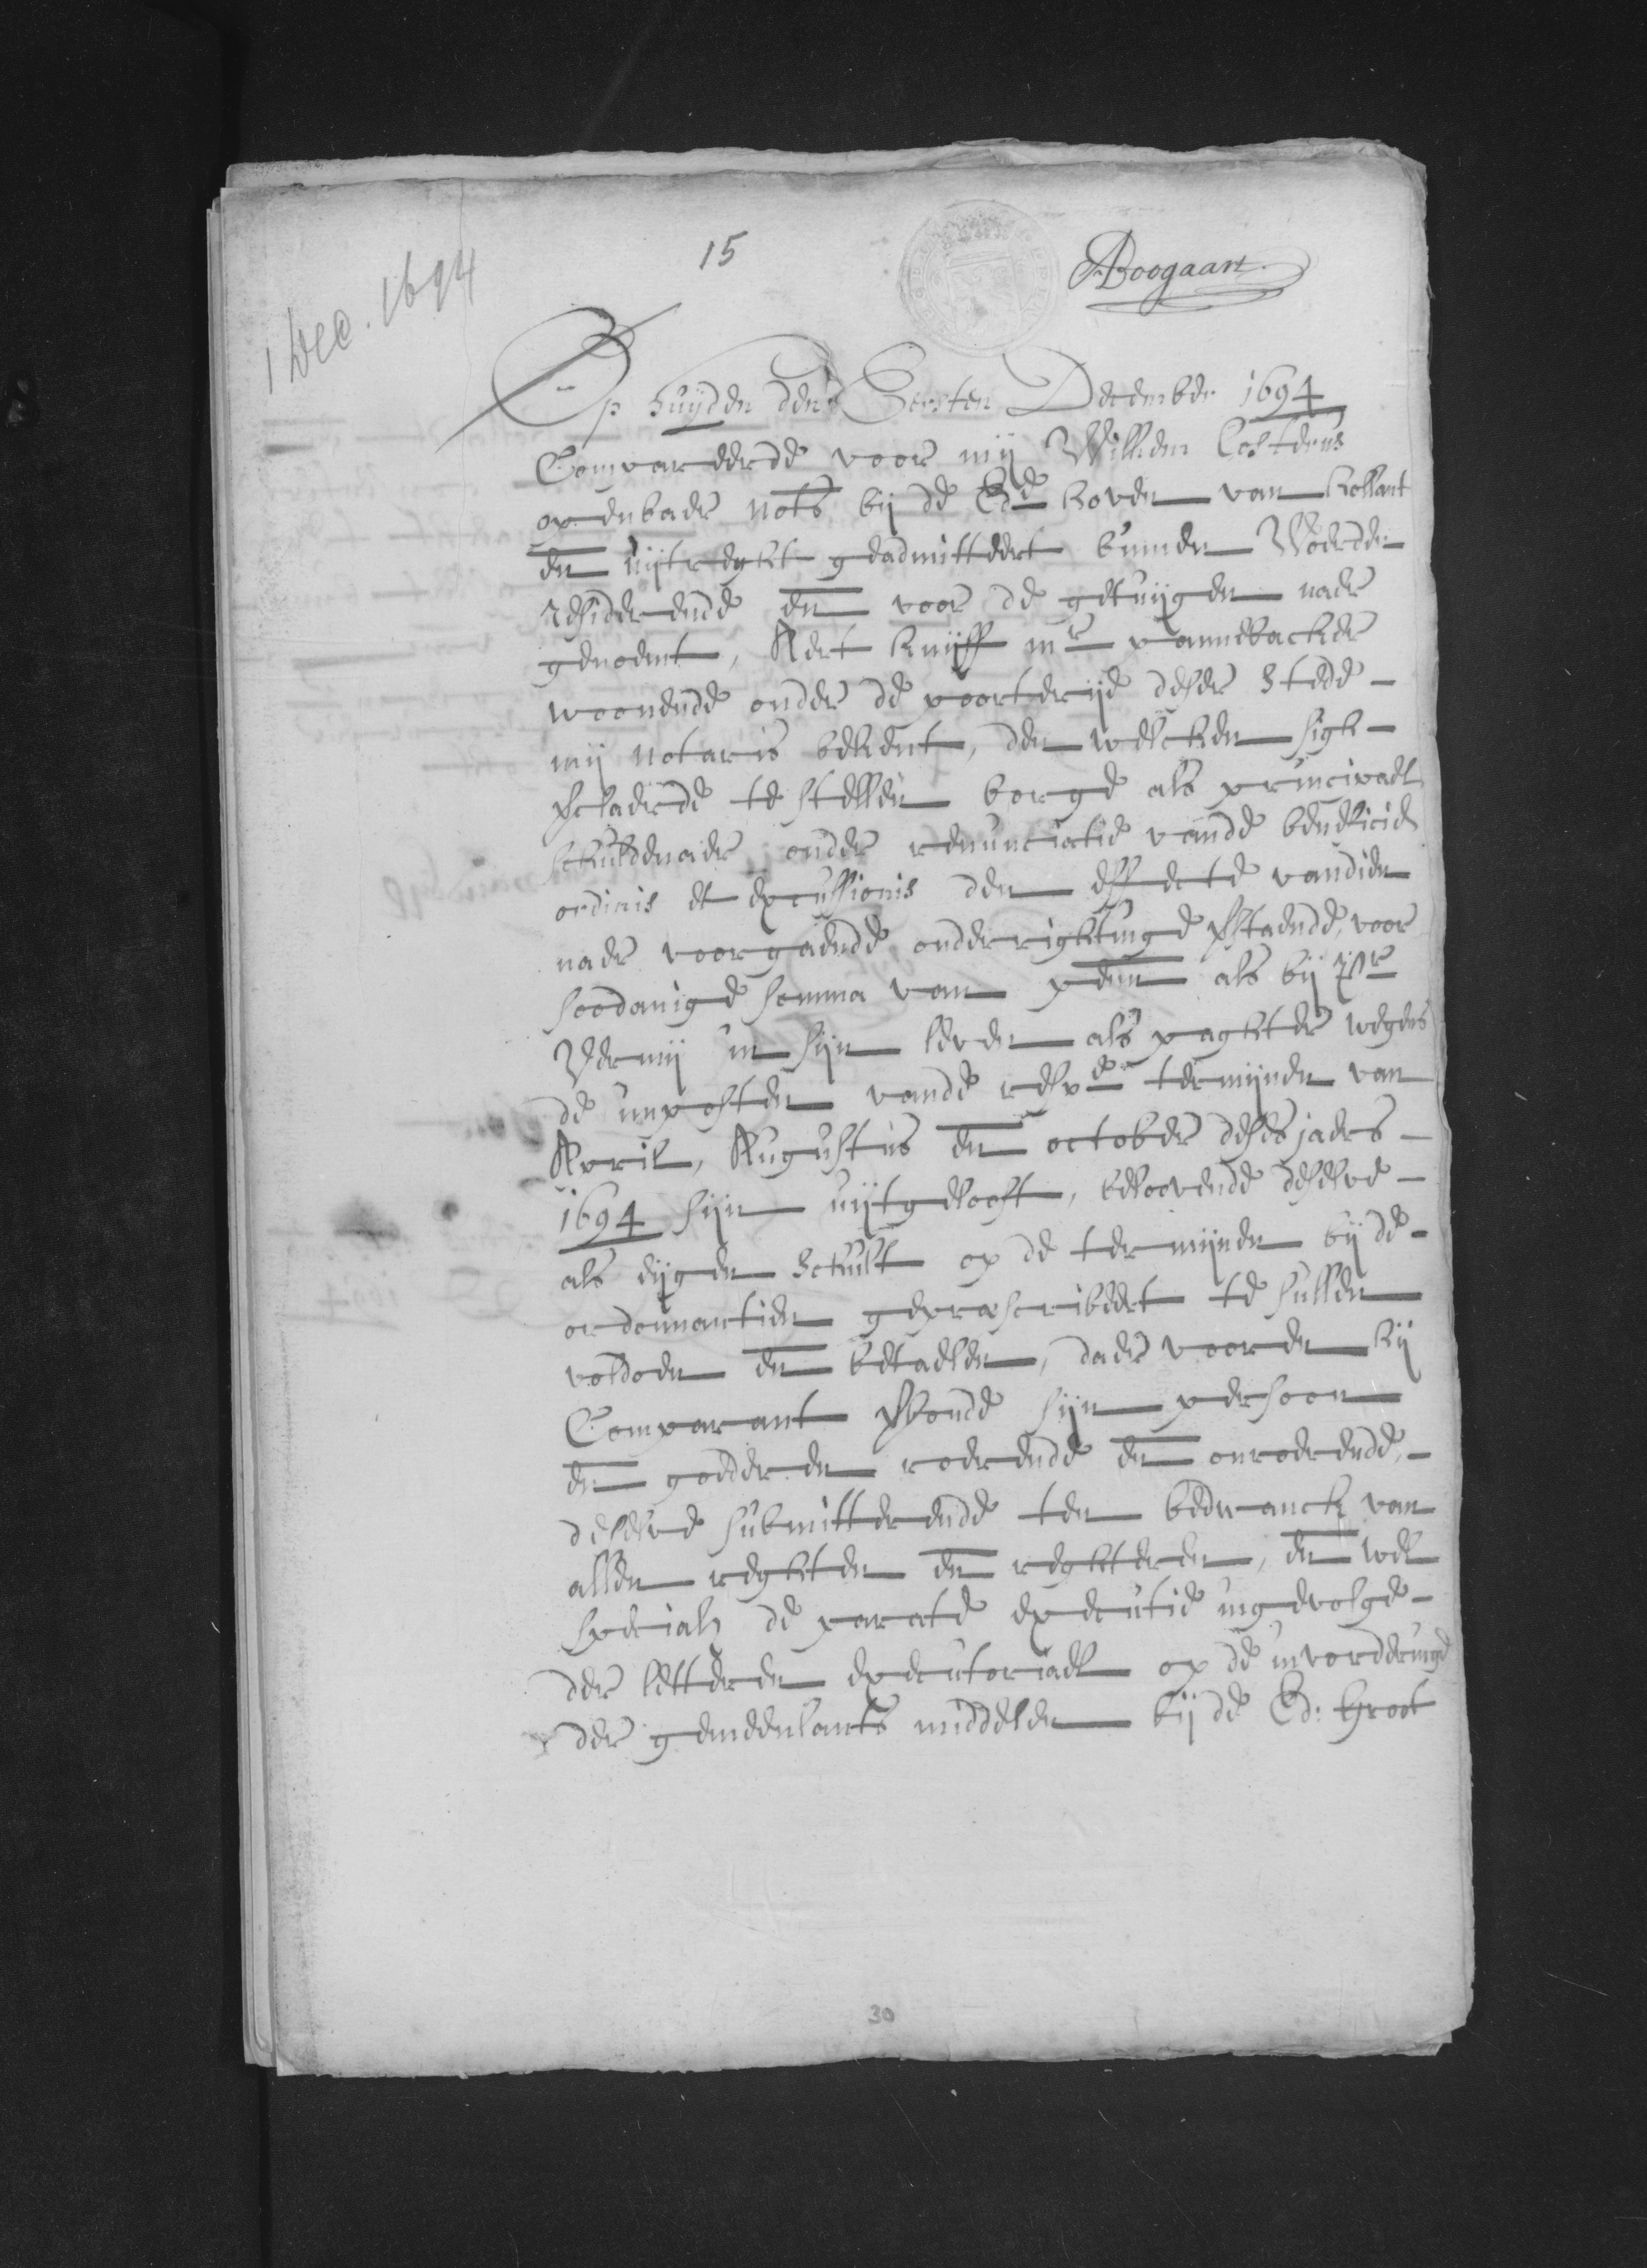 15
ABoogaart.
1 Dec. 1694
Op huijden den Eersten December 1694
Compareerde voor mij Willem Costerus
openbaer nots bij de Ede hoven van hollant
en uijtreght geadmitteert binnen Woerden
residerende en voor de getuijgen naer
genoemt, Aert Knijff mr pannebacker
woonende onder de poorterije deser stede
mij notaris bekent, den welcken sigh
verclaerde te stellen borge als principael
schuldenaer onder renunciatie vande beneficie
ordinis et excussionis den effecte vandien
naer voorgaende onderrightinge verstaende, voor
soodanige somma van penn als bij
in sijn leven als paghter wegens
de imposten vande respe termijnen van
April, Augustus en october deses jaers
1694 sijn uijtgelooft, belovende deselve
als eijgen schult op de termijnen bij de
ordonnantien geprescribeert te sullen
voldoen en betaelen, daer vooren hij
Comparant verbonde sijn persoon
en goederen roerende en onroerende,
deselve submitterende ten bedwanck van
allen reghten en reghteren, en wel
speciael de parate executie ingevolge
der letteren executoriael op de invorderinge
der gemeenlants middelen bij de Ed: Groot
30